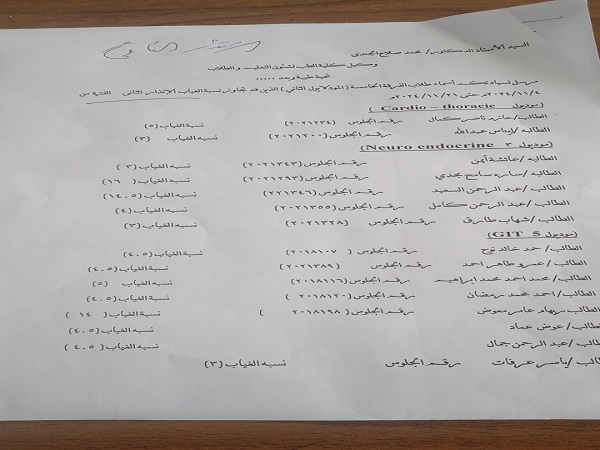 الإنذار الثاني
السيد الأستاذ الدكتور/ محمد صلاح الجندي
وكيل كلية الطب لشئون التعليم والطلاب
تحية طيبة وبعد .....
مرسل لسيادتكم أسماء طلاب الفرقة الخامسة (الموديول الثاني) الذين قد تجاوز نسبة الغياب الإنذار الثاني الفترة من
٢٠٢٤/١١/٤م حتى ٢٠٢٤/١١/٢١م
(موديول Cardio – thoracic)
الطالب/ حازم ناصر كمال رقم الجلوس (٢٠٢١٢٣٤) نسبة الغياب (٥)
الطالبه/ إيناس عبدالله رقم الجلوس (٢٠٢١٢٠٠) نسبه الغياب (٣)
(موديول ٢ Neuro endocrine)
الطالبه/ عائشة أيمن رقم الجلوس (٢٠٢١٢٤٣) نسبه الغياب (٣)
الطالب/ ساره سامح مجدي رقم الجلوس (٢٠٢١٢٩٣) نسبة الغياب (١٦)
الطالب/ عبد الرحمن السعيد رقم الجلوس (٢٢١٣٤٦) نسبة الغياب (١٤.٥)
الطالب/ عبد الرحمن كامل رقم الجلوس (٢٠٢١٣٥٥) نسبة الغياب (٤)
الطالب/ شهاب طارق رقم الجلوس (٢٠٢١٣٢٨) نسبة الغياب (٣)
(موديول GIT 5)
الطالب/ حمد خالد نوح رقم الجلوس (٢٠١٨١٠٧) نسبة الغياب (٤.٥)
الطالب/ عمرو طاهر احمد رقم الجلوس (٢٠٢١٣٨٩) نسبة الغياب (٤.٥)
الطالب/ محمد احمد محمد إبراهيم رقم الجلوس (٢٠١٨١١٦) نسبة الغياب (٥)
الطالب/ احمد محمد رمضان رقم الجلوس (٢٠١٨١٢٠) نسبة الغياب (٤.٥)
الطالب عامر معوض رقم الجلوس (٢٠١٨١٩٨) نسبة الغياب (١٤)
الطالب/ عوض عماد نسبة الغياب (٤.٥)
الطالب/ عبد الرحمن جمال نسبه الغياب (٤.٥)
الطالب/ ياسر عرفات رقم الجلوس نسبه الغياب (٣)